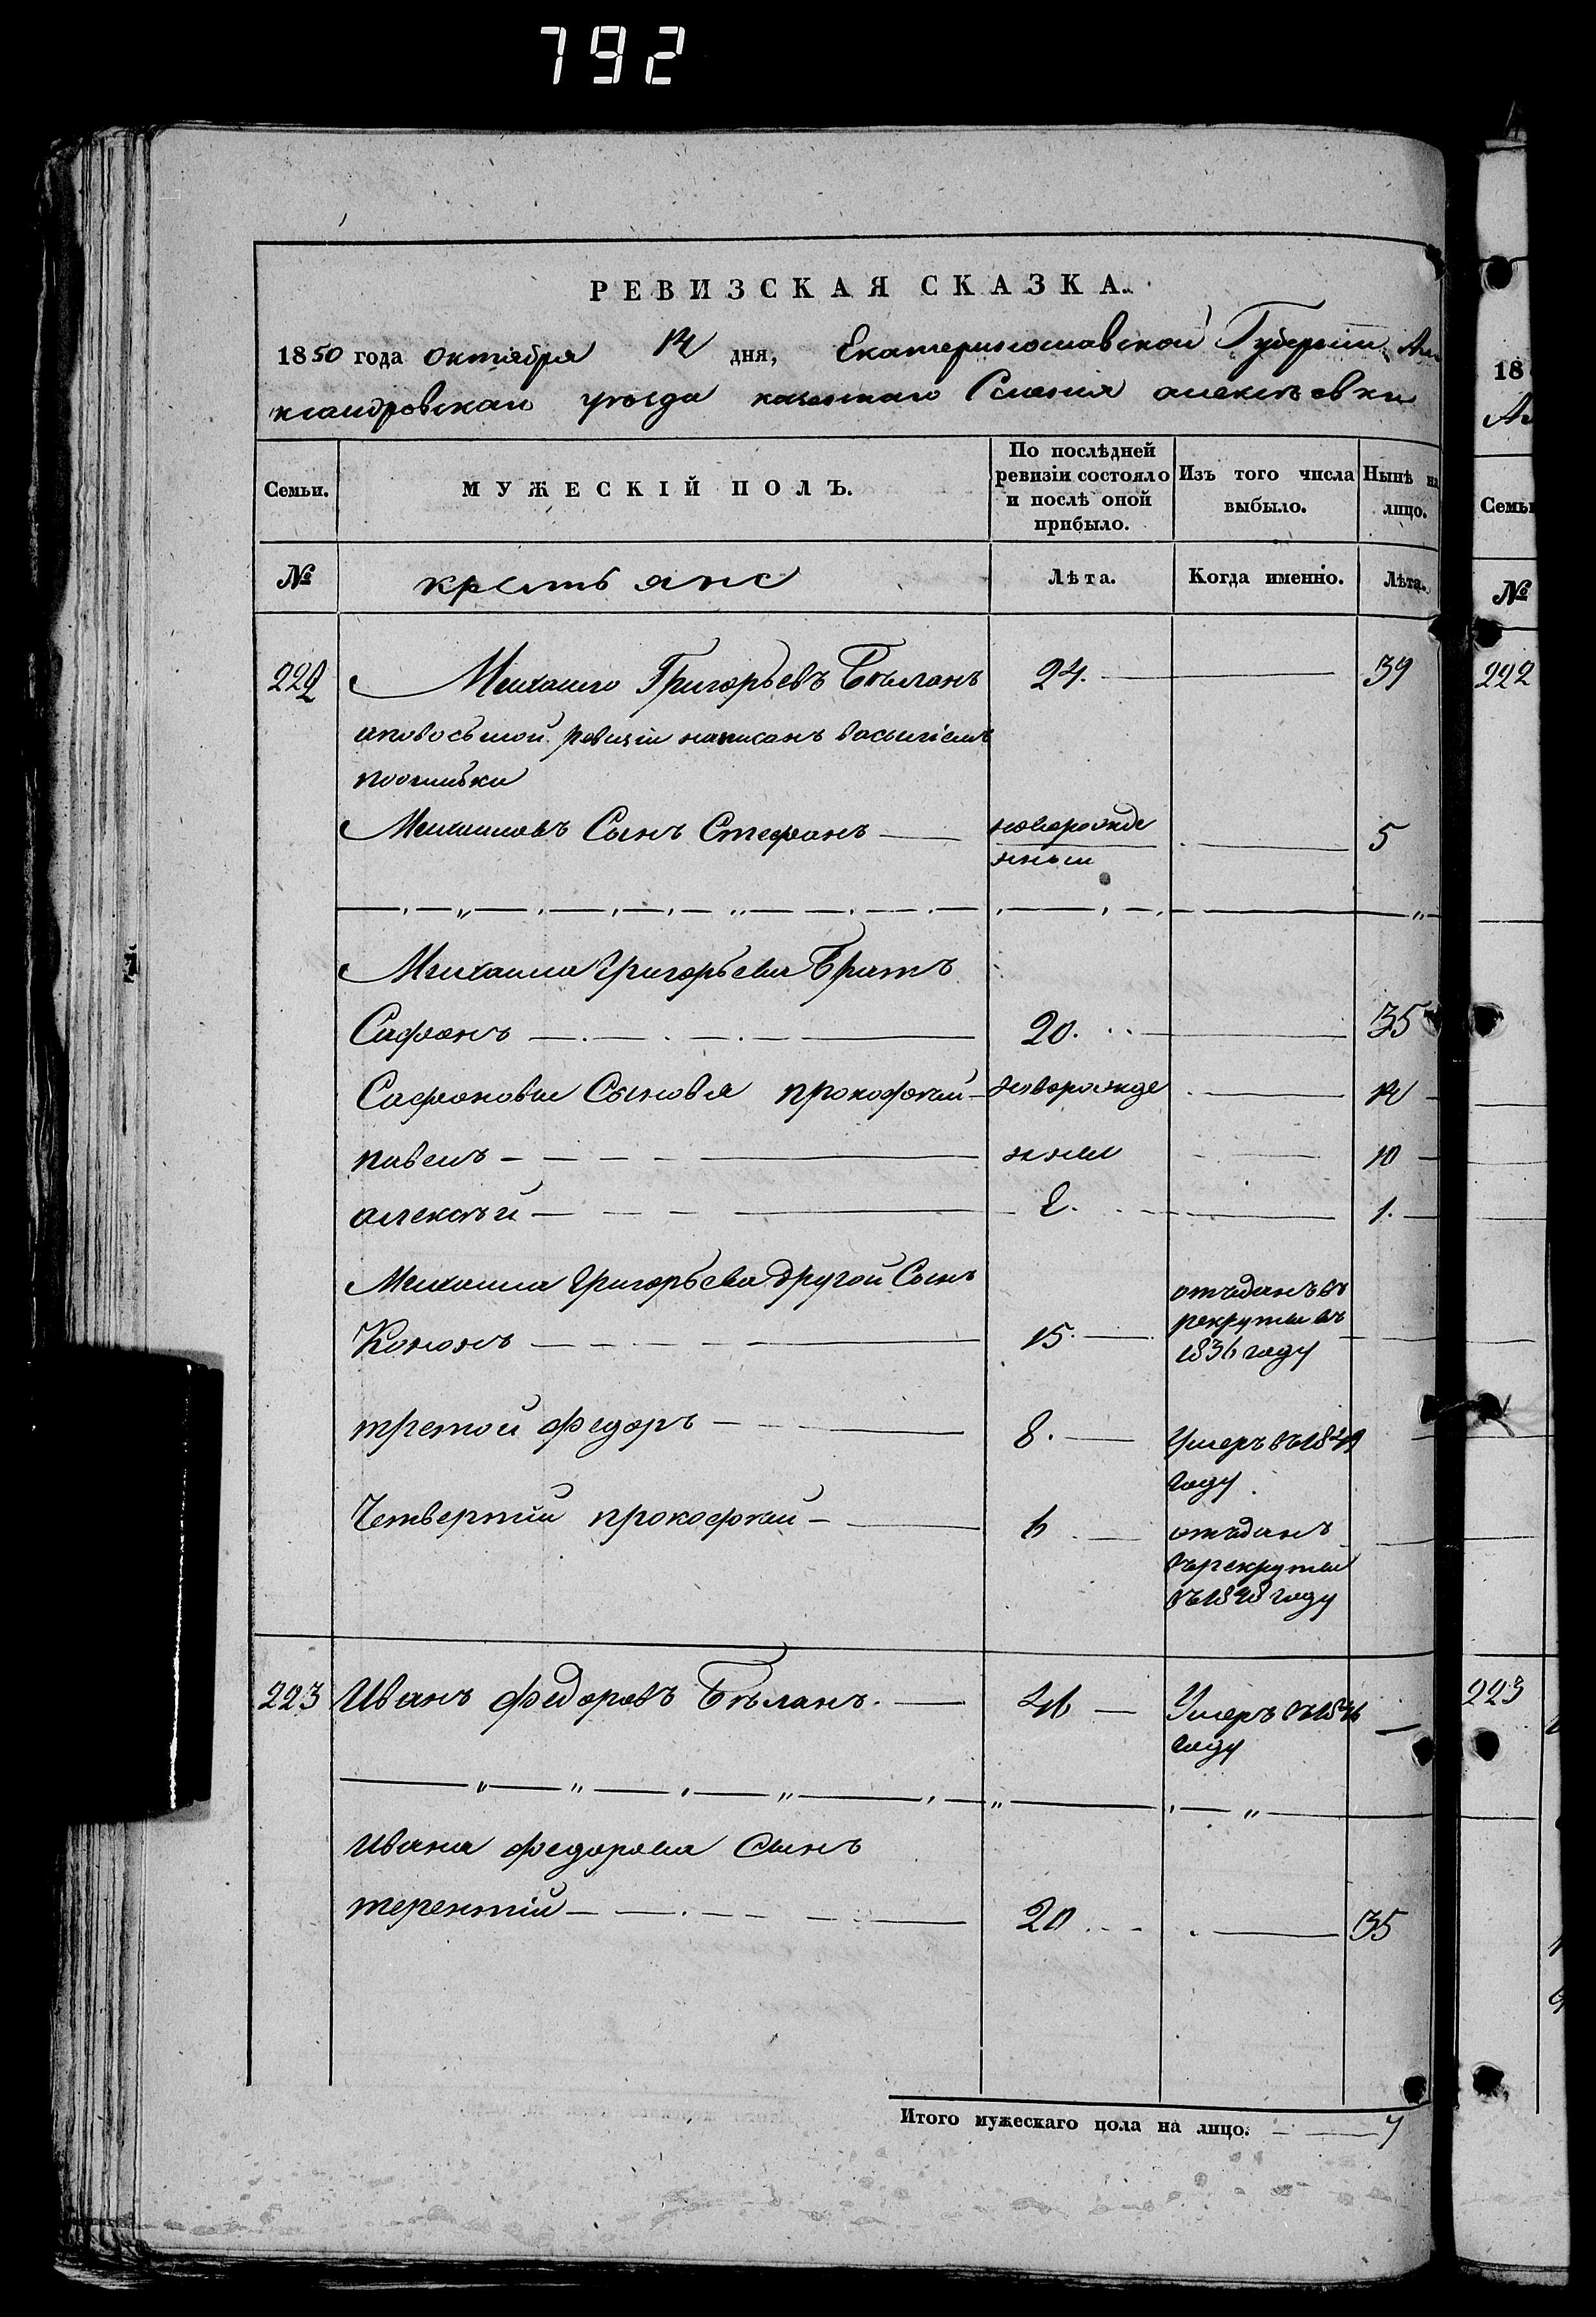 792
РЕВИЗСКАЯ СКАЗКА.
1850 года октября 14 дня, Екатеринославской Губернiи Але
ксандровскаго уезда казеннаго Селенiя алексѣевки
Семьи. МУЖЕСКІЙ ПОЛЪ. По послѣдней ревизіи состояло и послѣ оной прибыло. Изъ того числа выбыло. Нынѣ на лицо.
№ крестьяне Лѣта. Когда именно. Лѣта.
222 Михаило Григорьевъ Бѣланъ 24. 39
аповосьмой ревизiи написанъ васылiемъ
поошибки
Михаиловъ Сынъ Стефанъ новорожде 5
нный
Михаила Григорьева Братъ
Сафронъ 20. 35
Сафроновы Сыновья прокофий новорожде 14
павелъ нные 10
алексѣй 1.
Михаила Григорьева другой Сынъ отъданъ въ
рекруты въ
Кононъ 15. 1836 году
третой федоръ 8. Умеръ въ1841
году
Четвертий прокофий 6 отъданъ
върекруты
въ1848 году
223 Иванъ федоровъ Бѣланъ. 46 Умеръ въ1846
году
Ивана федорова Сынъ
терентiй 20 35
Итого мужескаго пола на лицо. 7
18
Ал
Семьи
№
222
223